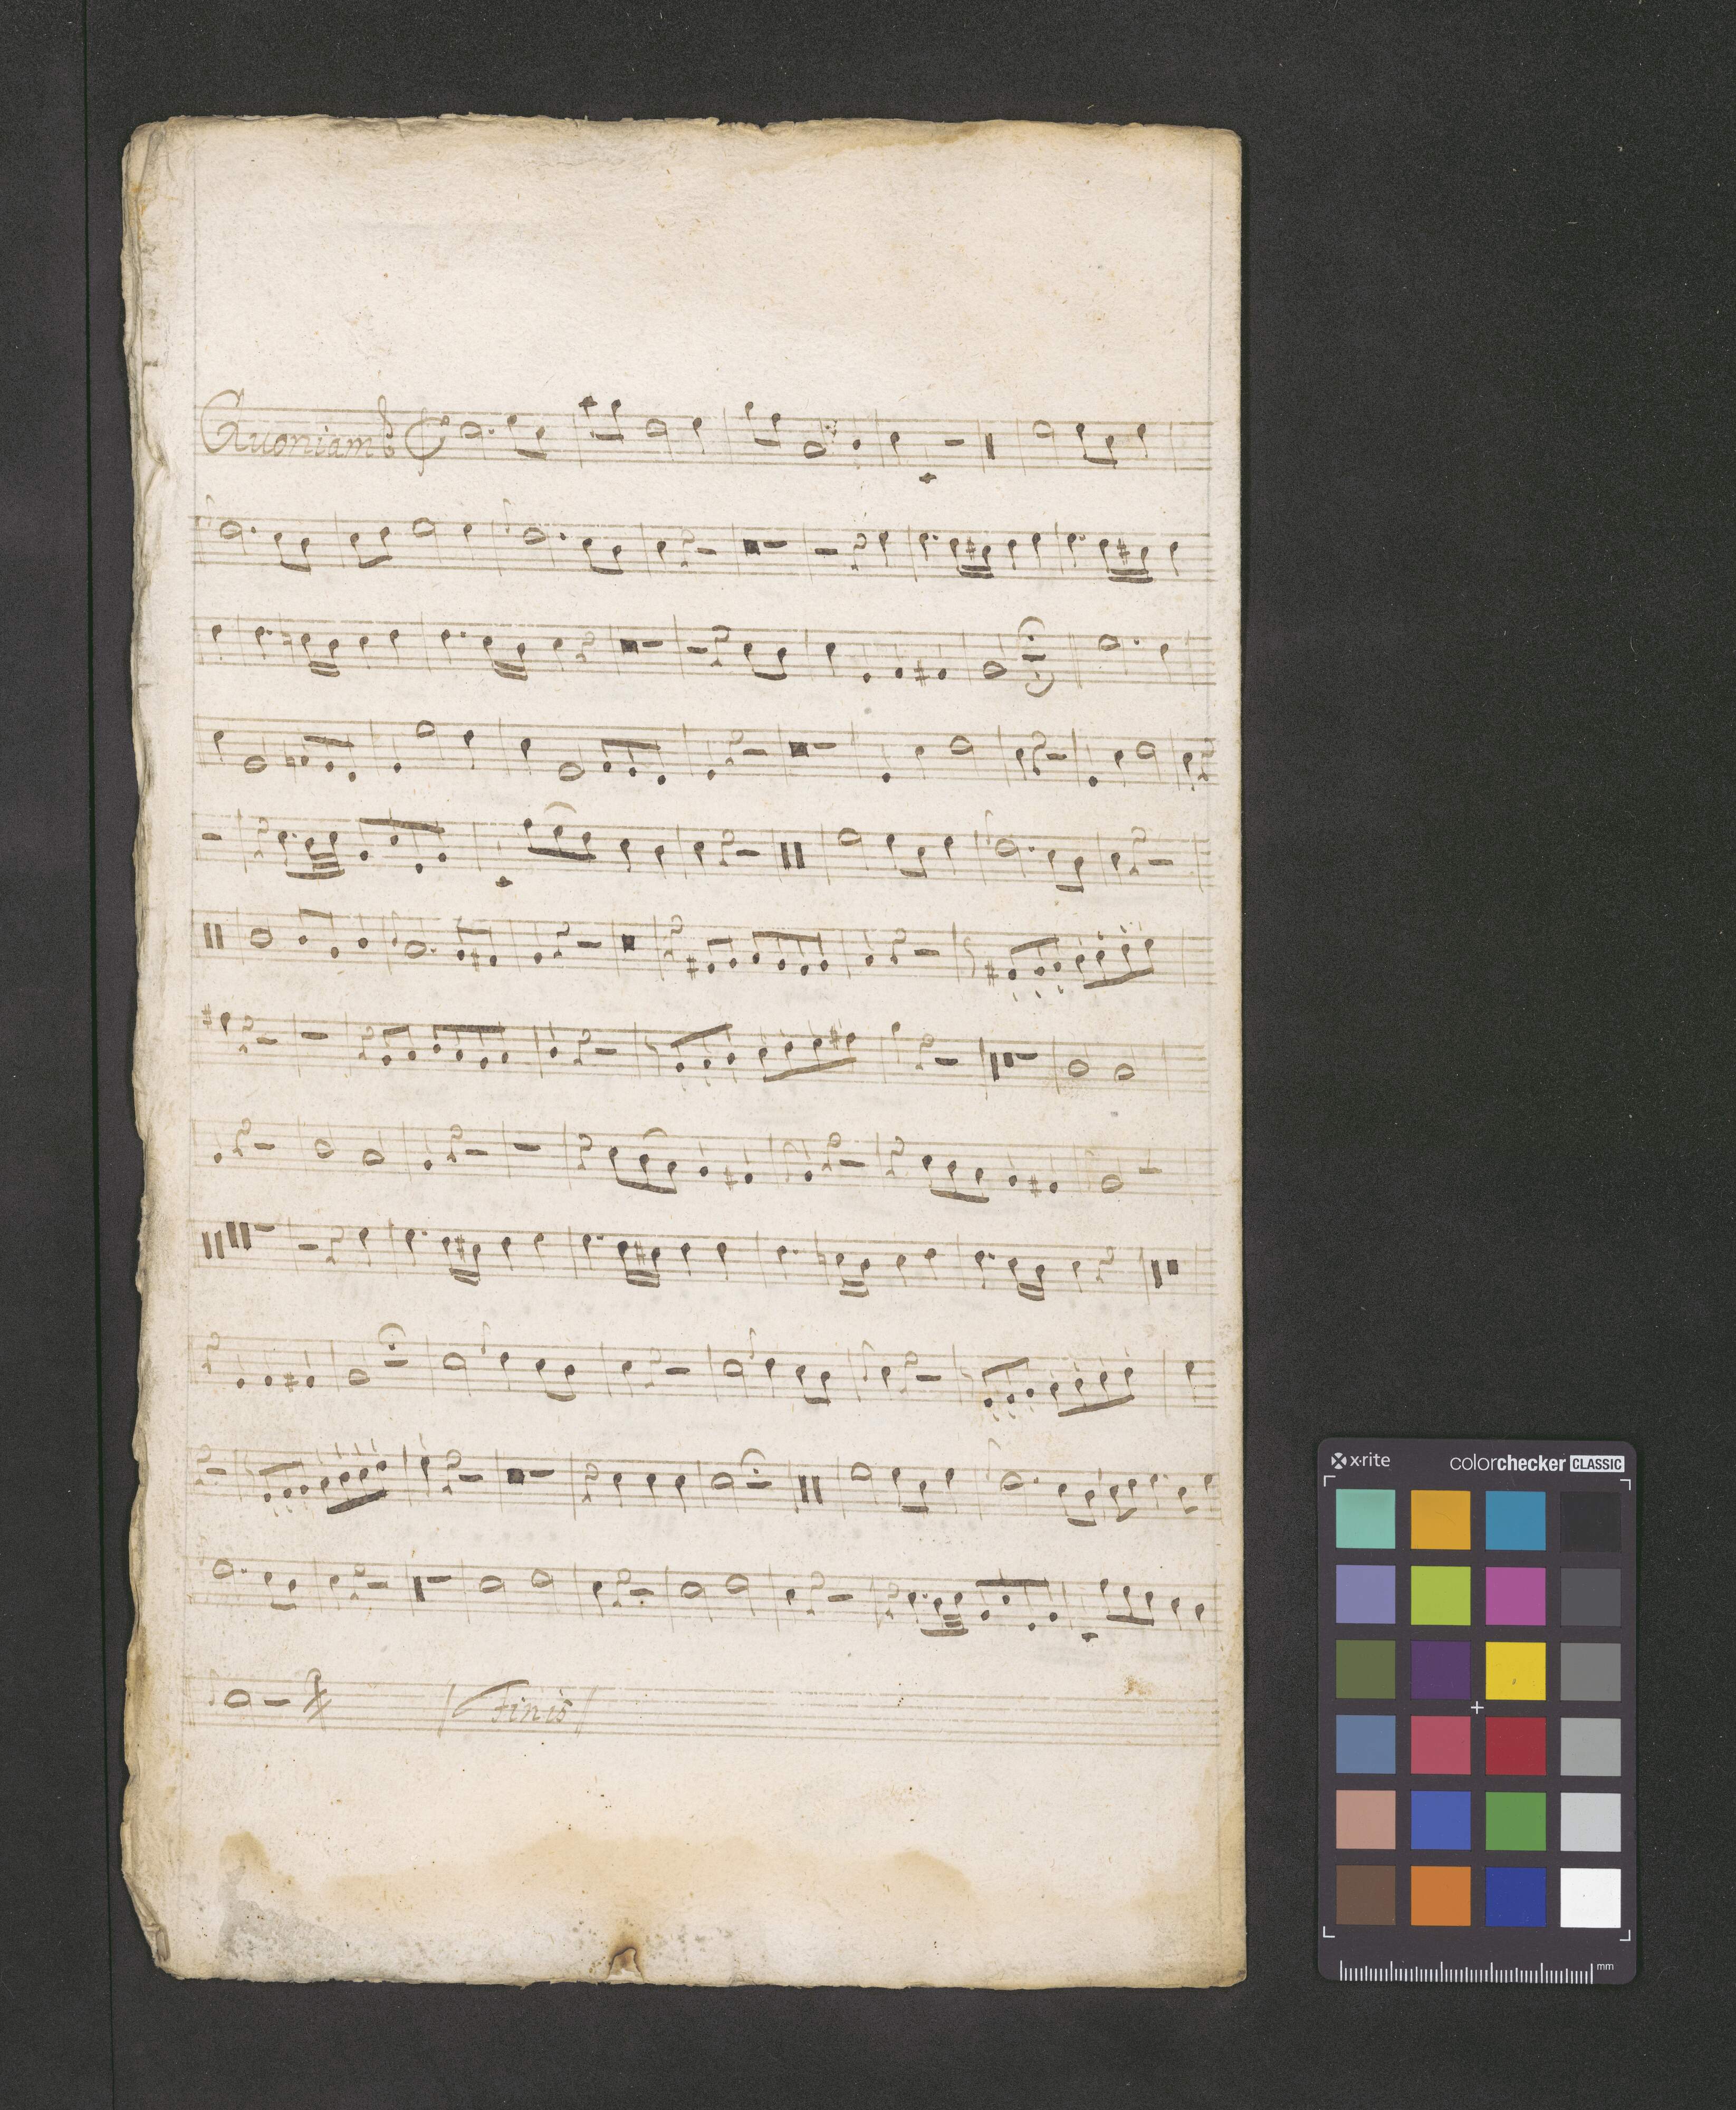 Quoniam
Finis
x·rite
colorchecker CLASSIC
mm